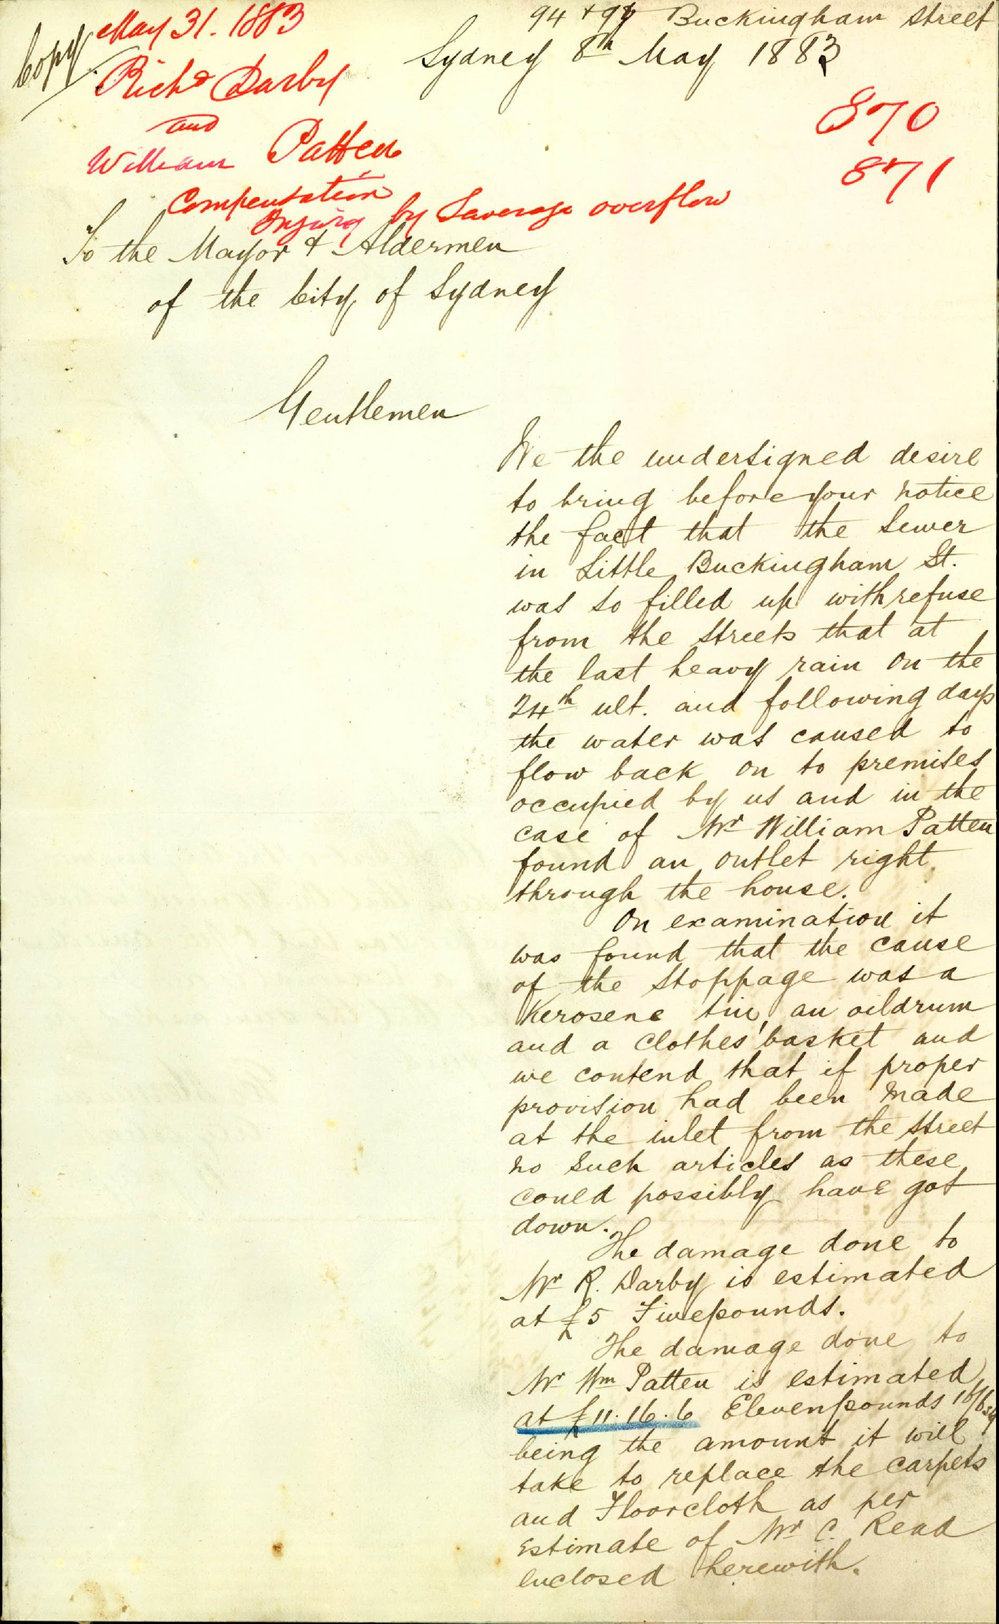 Copy
May 31. 1883
Richd Darby
and
William Patten
Compensation
Injury by Sewerage overflow
870
871
94 + 96 Buckingham Street
Sydney 8th May 1883
To the Mayor & Aldermen
of the City of Sydney
Gentlemen
We the undersigned desire
to bring before your notice
the fact that the Sewer
in Little Buckingham St.
was so filled up with refuse
from the streets that at
the last heavy rain on the
24th ult. and following days
the water was caused to
flow back on to premises
occupied by us and in the
case of Mr William Patten
found an outlet right
through the house.
On examination it
was found that the cause
of the stoppage was a
Kerosene tin, an oildrum
and a clothes' basket and
we contend that if proper
provision had been made
at the inlet from the street
no such articles as these
could possibly have got
down.
The damage done to
Mr R. Darby is estimated
at £5 Fivepounds.
The damage done to
Mr Wm Patten is estimated
at £11.16.6 Elevenpounds 16/6
being the amount it will
take to replace the carpets
and Floorcloth as per
Estimate of Mr C. Read
enclosed herewith.